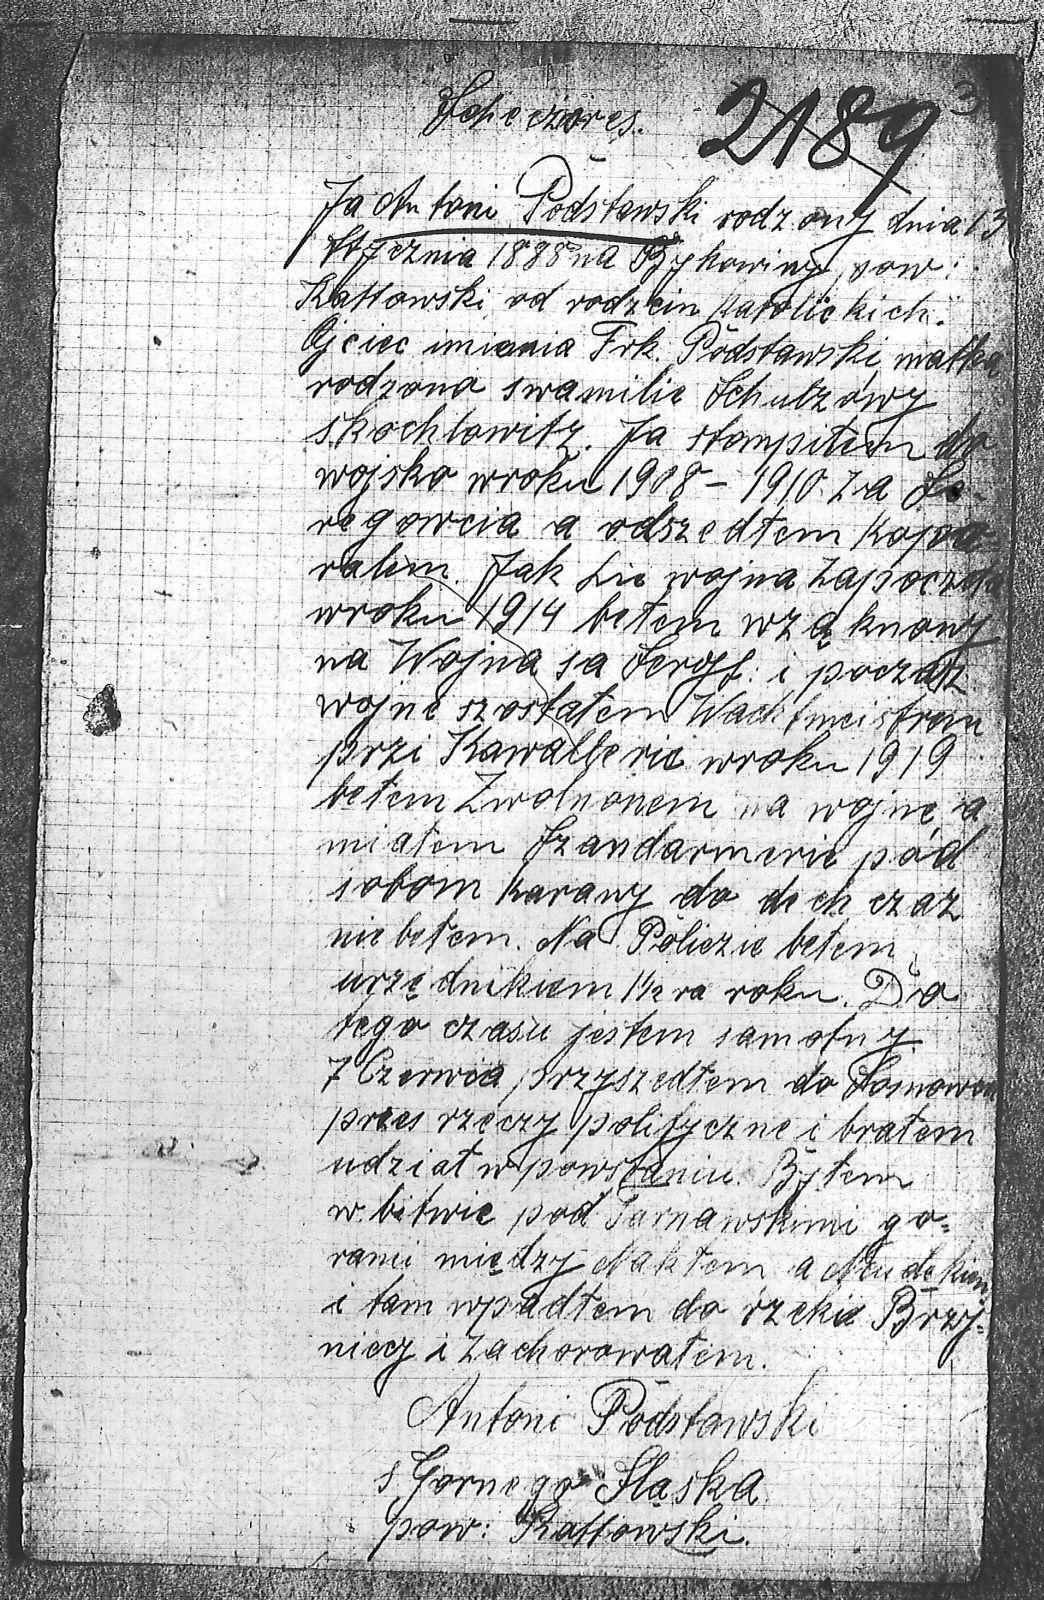 2189 3
Ja Antoni Podstawski rodzony dnia 13
stycznia 1888 na Bykowiny, pow:
Kattowski od rodzcin katolickich.
Ojciec imiania Frk. Podstawski, matka
rodzona swamilie Schulzówy
skochlowitz. Ja stompiłem do
wojska wroku 1908 – 1910 za
regowcia a odszedłem kapo=
ralem. Jak sie wojna zapoczęła
wroku 1914 betem wząknowy
na Wojna sa Sergf: i poczas
wojne szostałem Wachtmeistrem
przi Kawallerie wroku 1919
betem Zwolnonem na wojne, a
miałem Szandarmerie pod
sobom karany do dech czaz
nie betem. Na Policzie betem
urzędnikiem 1½ ra roku. Do
tego czasu jestem samotny.
7 Czerwca przyszedłem do Sosnowca
pres rzeczy polityczne i brałem
udział w powstaniu. Byłem
w bitwie pod Tarnawskimi go=
rami między Nakłem a Neudekiem
i tam wpadłem do rzekie Brzy=
niecy i zachorowałem.
Antoni Podstawski
s Gornego Slaska
pow: Kattowski.